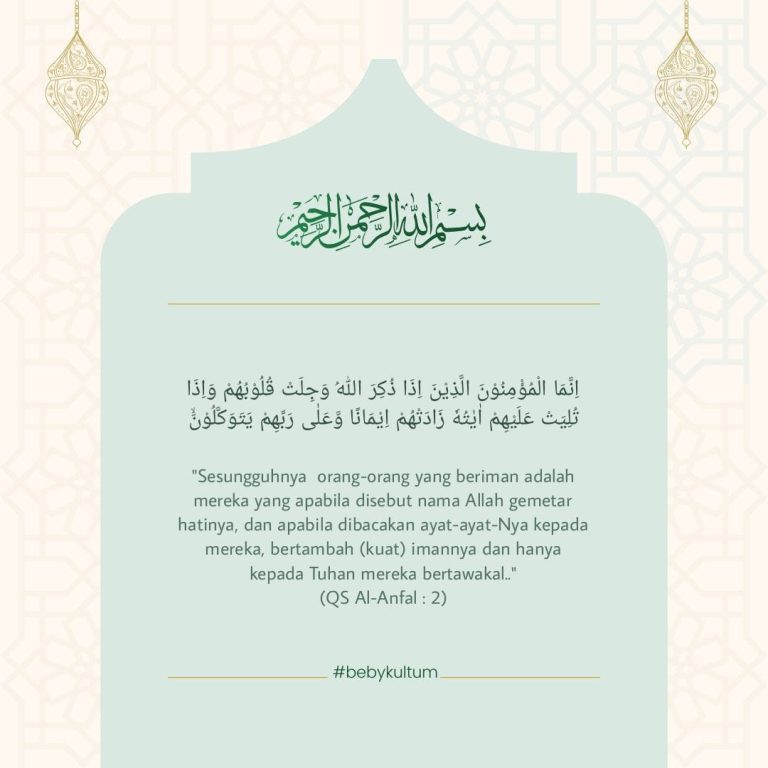 بِسْمِ اللهِ الرَّحْمَنِ الرَّحِيْمِ
اِنَّمَا الْمُؤْمِنُوْنَ الَّذِيْنَ اِذَا ذُكِرَ اللّٰهُ وَجِلَتْ قُلُوْبُهُمْ وَاِذَا
تُلِيَتْ عَلَيْهِمْ اٰيٰتُهٗ زَادَتْهُمْ اِيْمَانًا وَّعَلٰى رَبِّهِمْ يَتَوَكَّلُوْنَۙ
"Sesungguhnya  orang-orang yang beriman adalah
mereka yang apabila disebut nama Allah gemetar
hatinya, dan apabila dibacakan ayat-ayat-Nya kepada
mereka, bertambah (kuat) imannya dan hanya
kepada Tuhan mereka bertawakal.."
(QS Al-Anfal : 2)
#bebykultum